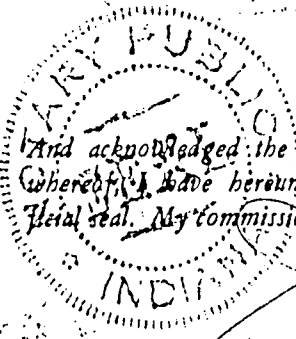 ARY PUBLIC
And acknowledged the
whereof, I have hereun
ficial seal. My commissi
INDIANA